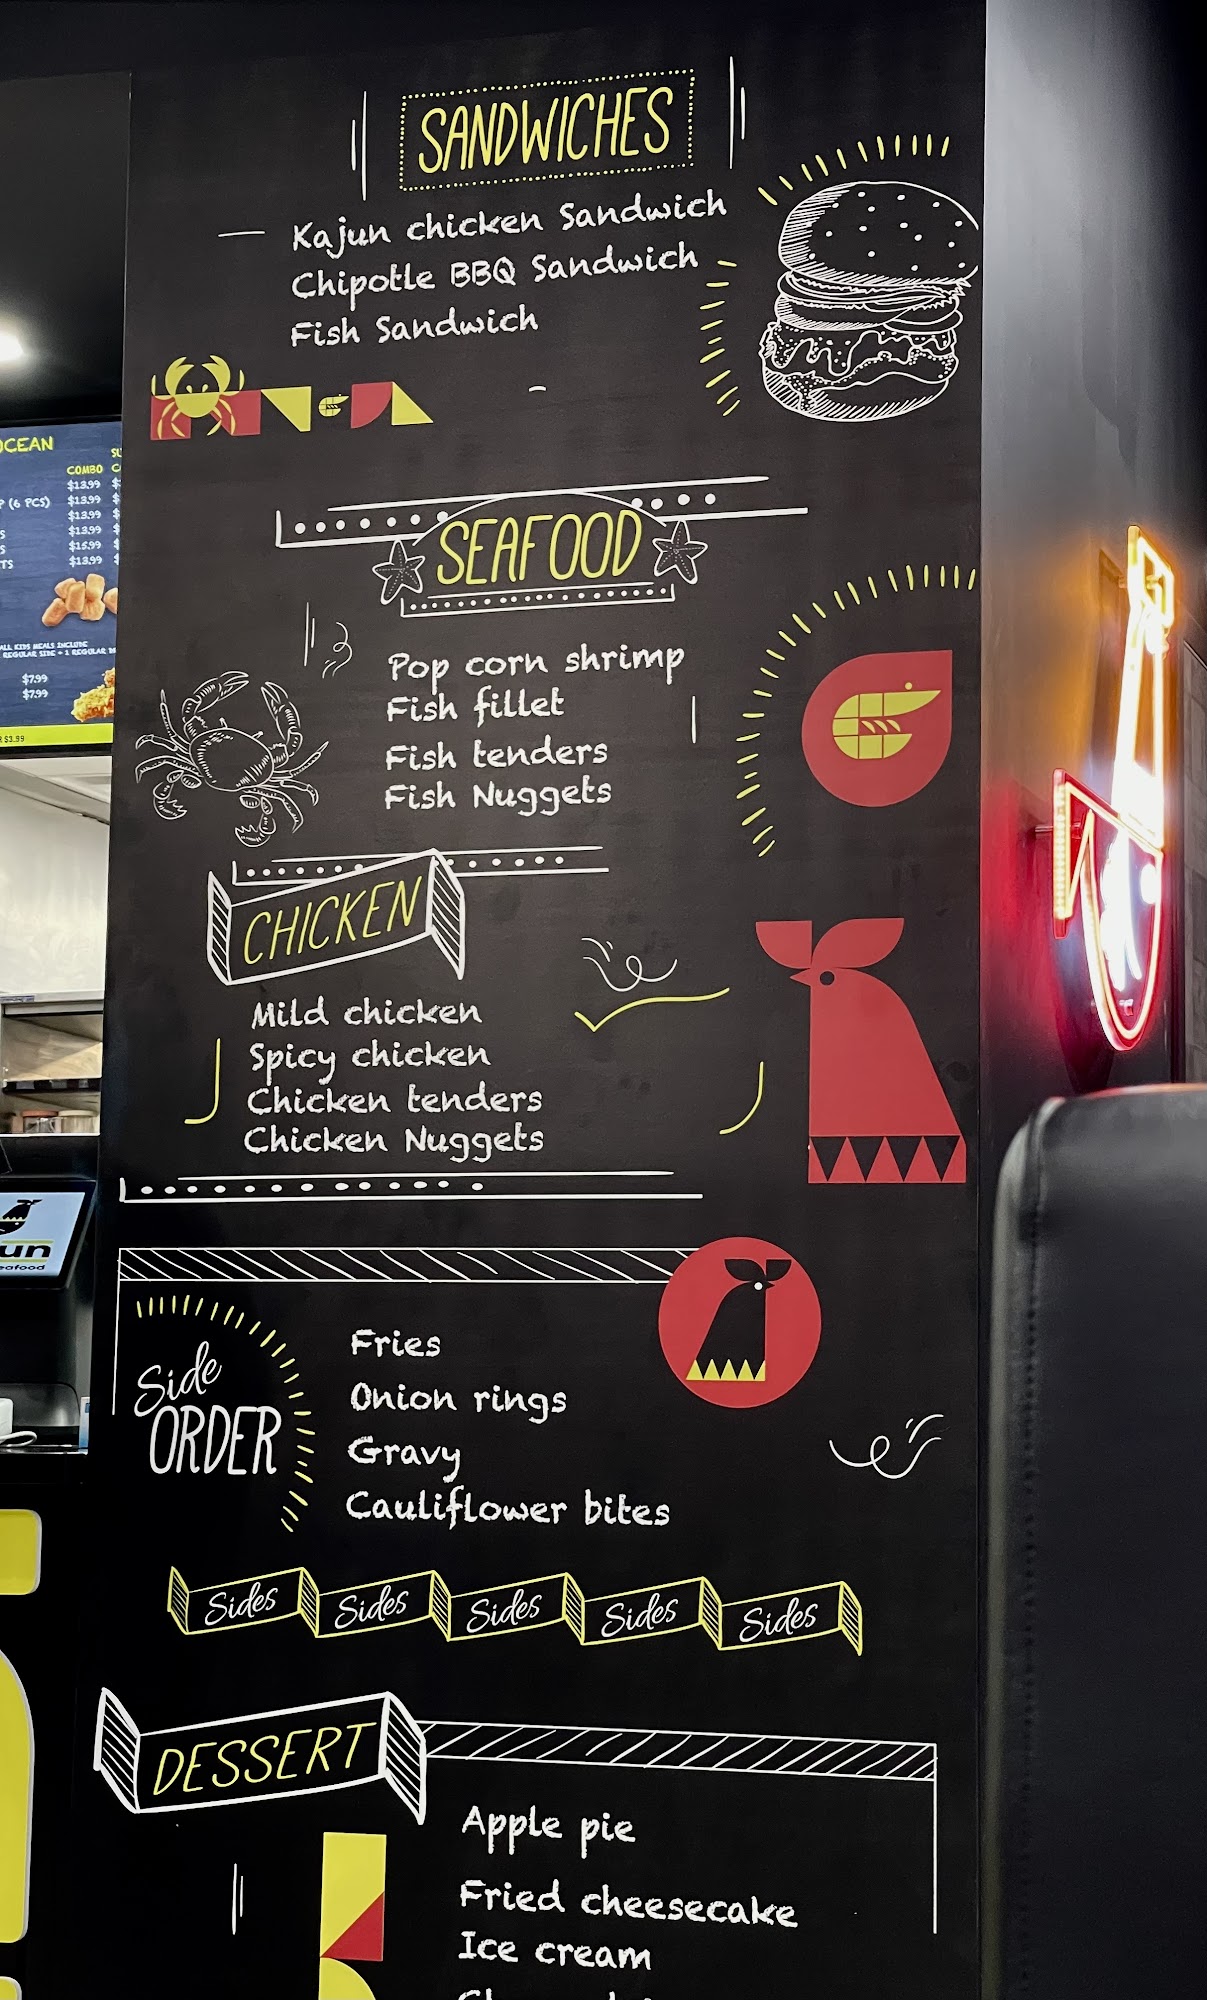 SANDWICHES
Kajun chicken Sandwich
Chipotle BBQ Sandwich
Fish Sandwich
OCEAN
COMBO
$13.99
(6 PCS) $13.99
$13.99
$13.99
$15.99
$13.99
ALL KIDS MEALS INCLUDE
REGULAR SIDE + 1 REGULAR
$7.99
$7.99
$3.99
SEAFOOD
Pop corn shrimp
Fish fillet
Fish tenders
Fish Nuggets
CHICKEN
Mild chicken
Spicy chicken
Chicken tenders
Chicken Nuggets
un
eafood
Side
ORDER
Fries
Onion rings
Gravy
Cauliflower bites
Sides Sides Sides Sides Sides
DESSERT
Apple pie
Fried cheesecake
Ice cream